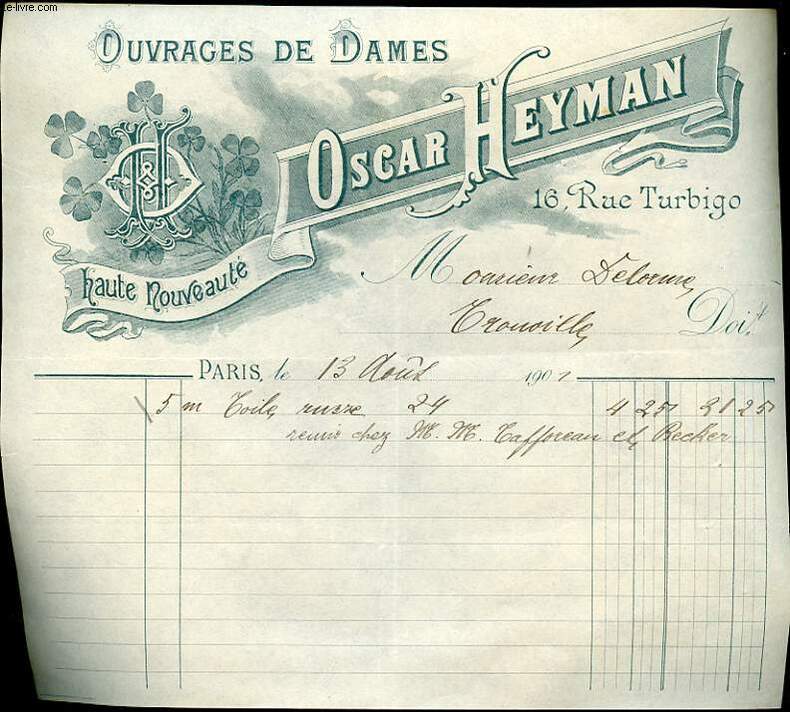 le-livre.com
OUVRAGES DE DAMES
OSCAR HEYMAN
16, Rue Turbigo
Haute Nouveauté
Monsieur Delorme,
Trouville, Doit
PARIS, le 13 Août 1901
5 m Toile russe 24 4 25 21 25
remis chez M. M. Tafforeau et Recker